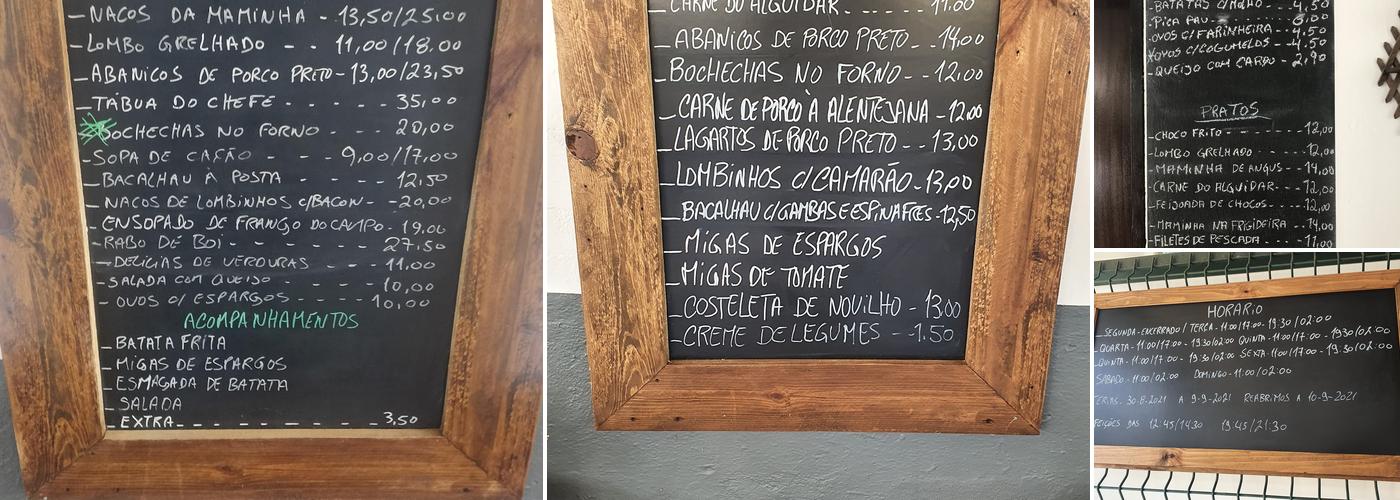 NACOS DA MAMINHA - 13,50/25,00
LOMBO GRELHADO - - 11,00/18.00
ABANICOS DE PORCO PRETO - 13,00/23,50
TÁBUA DO CHEFE - - - - - 35,00
BOCHECHAS NO FORNO - - - 20,00
SOPA DE CAÇÃO - - - 9,00/17,00
BACALHAU À POSTA - - - - 12,50
NACOS DE LOMBINHOS C/BACON - -20,00
ENSOPADO DE FRANGO DO CAMPO - 19,00
RABO DE BOI - - - - - - 27,50
DELICIAS DE VERDURAS - - - 11,00
SALADA COM QUEIJO - - - - 10,00
OVOS C/ ESPARGOS - - - - 10,00
ACOMPANHAMENTOS
BATATA FRITA
MIGAS DE ESPARGOS
ESMAGADA DE BATATA
SALADA
EXTRA - - - - - - - 3,50
CARNE DO ALGUIDAR - - - - - 11.00
ABANICOS DE PORCO PRETO - - 14,00
BOCHECHAS NO FORNO - - 12,00
CARNE DE PORCO À ALENTEJANA - 12,00
LAGARTOS DE PORCO PRETO - - 13,00
LOMBINHOS C/CAMARÃO - 13,00
BACALHAU C/GAMBAS E ESPINAFRES - 12,50
MIGAS DE ESPARGOS
MIGAS DE TOMATE
COSTELETA DE NOVILHO - 13,00
CREME DE LEGUMES - - 1.50
BATATAS C/MOLHO - - 4,50
PICA PAU - - - - 8,00
OVOS C/FARINHEIRA - - 4,50
OVOS C/COGUMELOS - - 4,50
QUEIJO COM - - 2,90
PRATOS
CHOCO FRITO - - - - - - 12,00
LOMBO GRELHADO - - - - 12,00
MAMINHA DE ANGUS - - - 14,00
CARNE DO ALGUIDAR - - - 12,00
FEIJOADA DE CHOCOS - - - 12,00
MAMINHA NA FRIGIDEIRA - - 14,00
FILETES DE PESCADA - - - 11,00
HORÁRIO
SEGUNDA - ENCERRADO / TERÇA - 11:00/17:00 - 19:30/02:00
QUARTA - 11:00/17:00 - 19:30/02:00 QUINTA - 11:00/17:00 - 19:30/02:00
QUINTA - 11:00/17:00 - 19:30/02:00 SEXTA - 11:00/17:00 - 19:30/02:00
SÁBADO - 11:00/02:00 DOMINGO - 11:00/02:00
FÉRIAS. 30-8-2021 A 9-9-2021 REABRIMOS A 10-9-2021
DAS 12:45/14:30 19:45/21:30